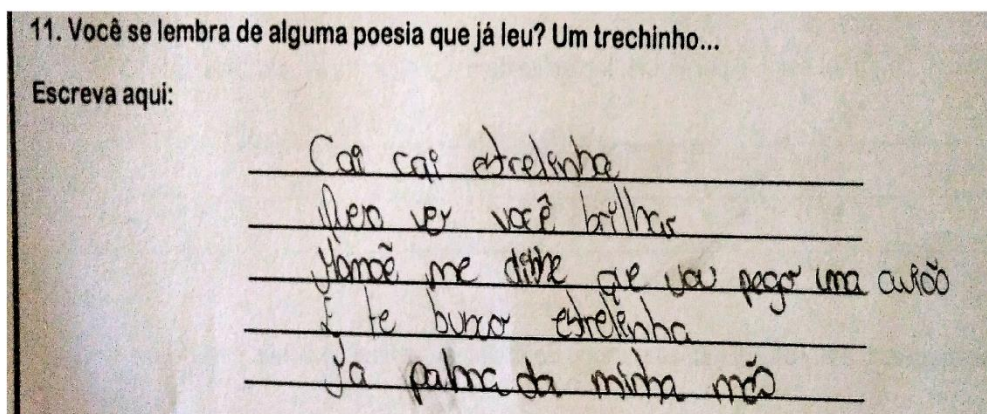 11. Você se lembra de alguma poesia que já leu? Um trechinho...
Escreva aqui:
Cai cai estrelinha
ver você brilhar
me que vou pega uma avião
E te estrelinha
palma da minha mão